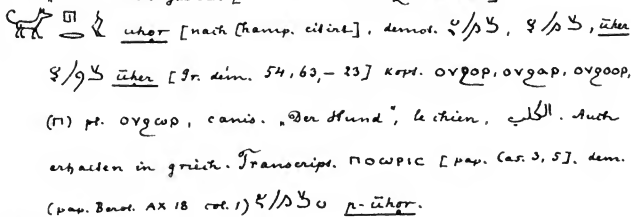 uhor [nach Champ. citirt], demot. , , ūher
ūher [Gr. dém. 54, 63, – 23] kopt. ⲟⲩϩⲟⲣ, ⲟⲩϩⲁⲣ, ⲟⲩϩⲟⲟⲣ,
(ⲡ) pl. ⲟⲩϩⲱⲣ, canis. „Der Hund“, le chien, الكلب. Auch
erhalten in griech. Transcript. ΠΟΩΡΙC [pap. Cas. 3, 5]. dem.
(pap. Berol. AX 18 col. 1) p-ūhor.